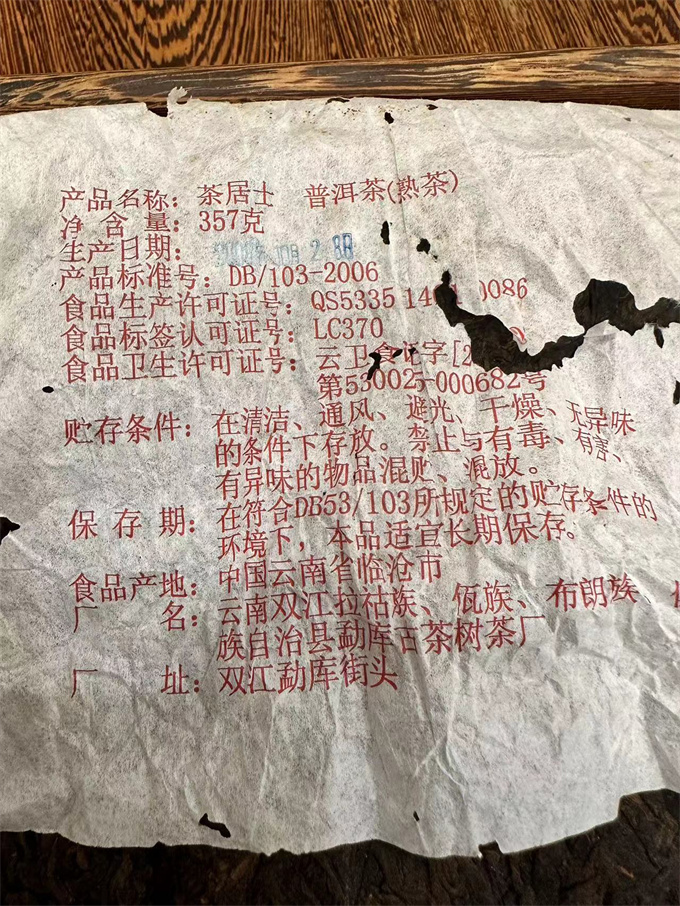 产品名称：茶居士 普洱茶(熟茶)
净含量：357克
生产日期：
产品标准号：DB/103-2006
食品生产许可证号：QS5335 14 0086
食品标签认可证号：LC370
食品卫生许可证号：云卫食证字[2
第530025-000682号
贮存条件：在清洁、通风、避光、干燥、无异味
的条件下存放。禁止与有毒、有害、
有异味的物品混贮、混放。
保存期：在符合DB53/103所规定的贮存条件的
环境下，本品适宜长期保存。
食品产地：中国云南省临沧市
厂名：云南双江拉祜族、佤族、布朗族
族自治县勐库古茶树茶厂
厂址：双江勐库街头